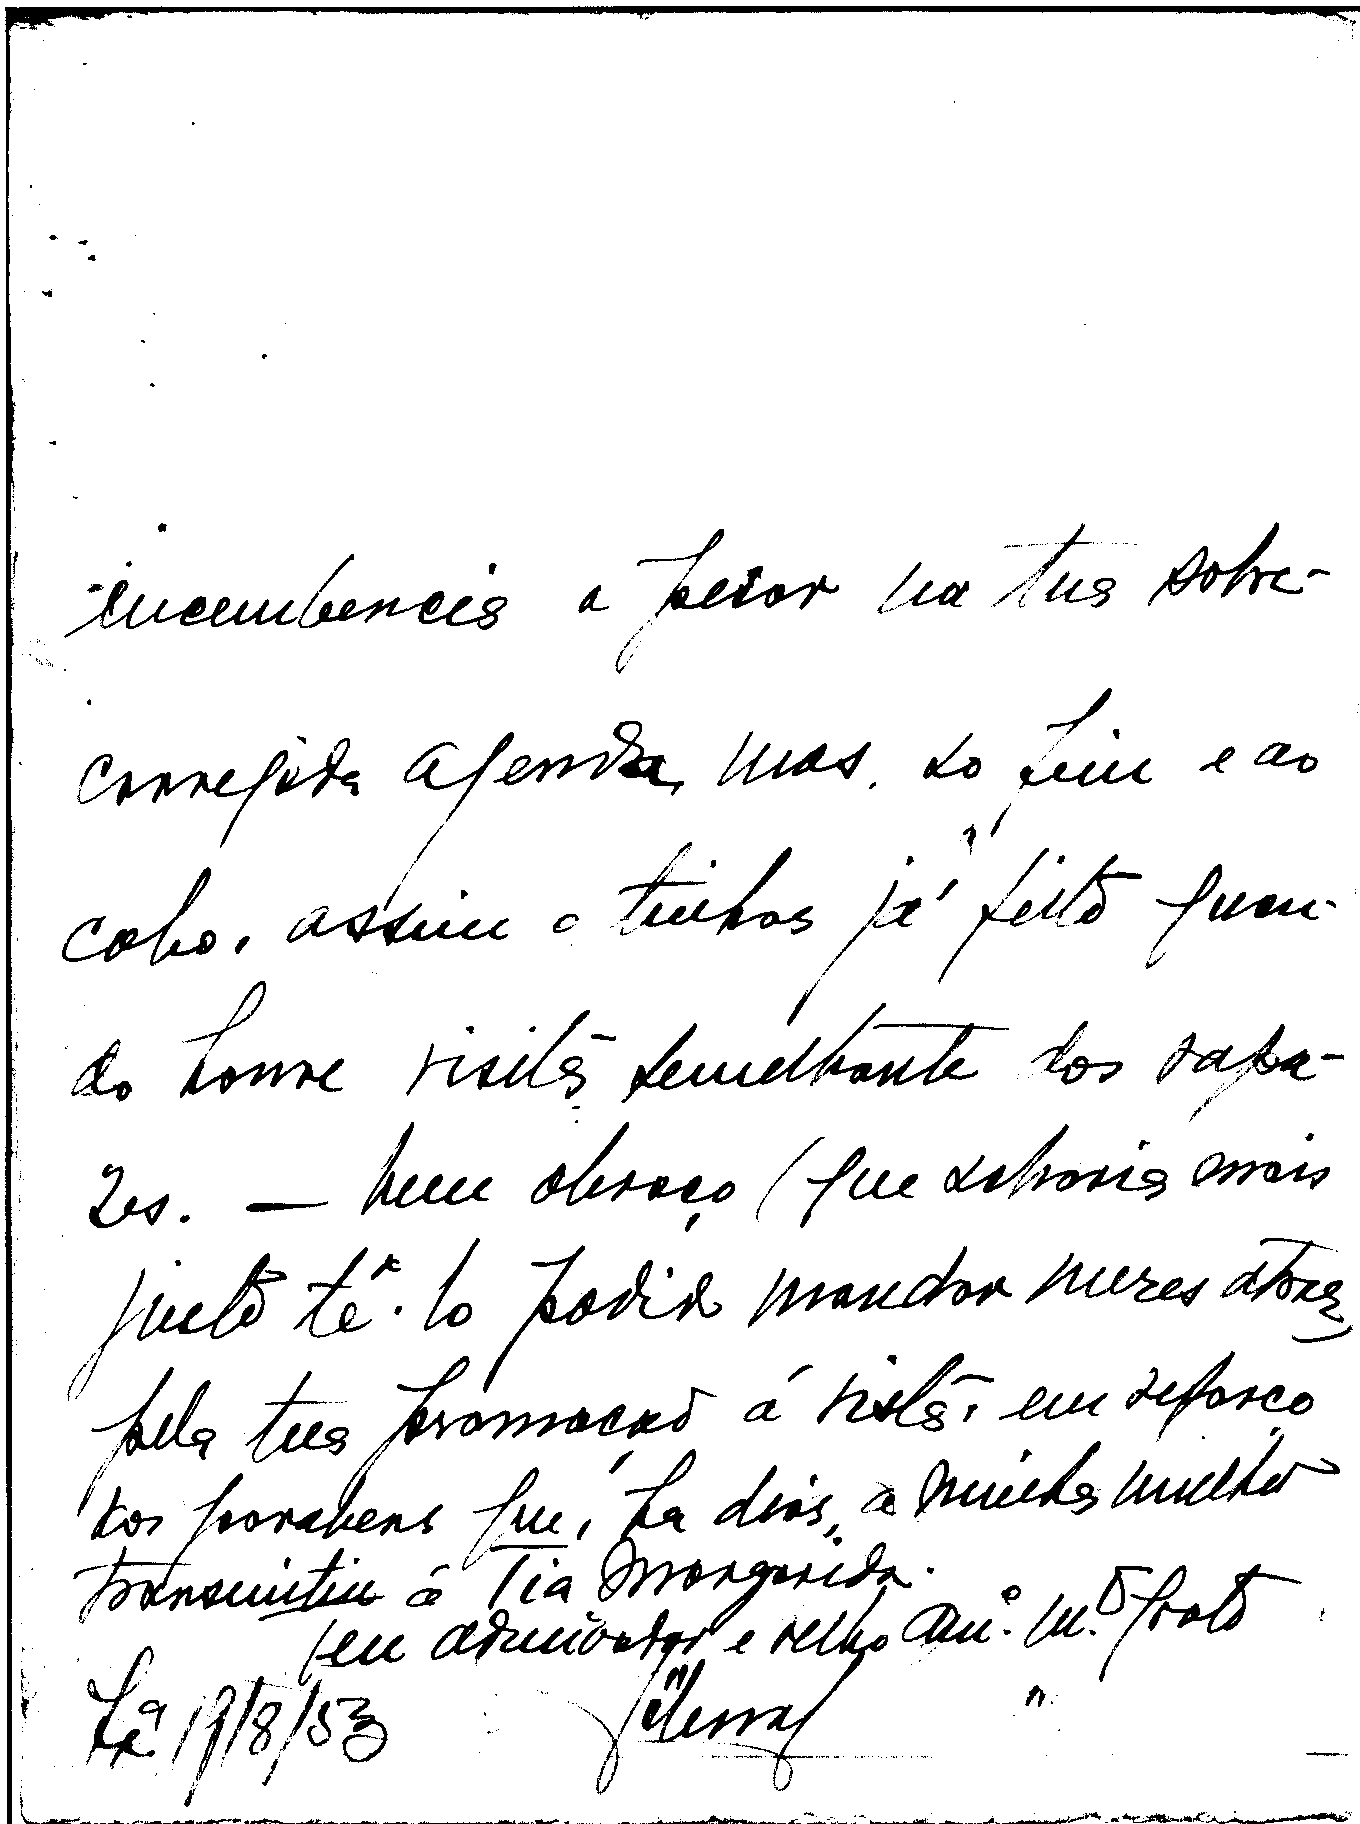 incumbencia a pesar na tua sobre-
carregada agenda, mas, ao fim e ao
cabo, assim o tinhas já feito quan-
do houve visita semelhante dos rapa-
zes. — Num abraço (que saberia mais
justo tê-lo podido mandar meses atraz)
pela tua promoção á vista, em reforço
dos parabens que, ha dias, a minha mulher
transmitiu á Tia Margarida.
seu admirador e velho am.º m.to grato
Lxª 19/8/53